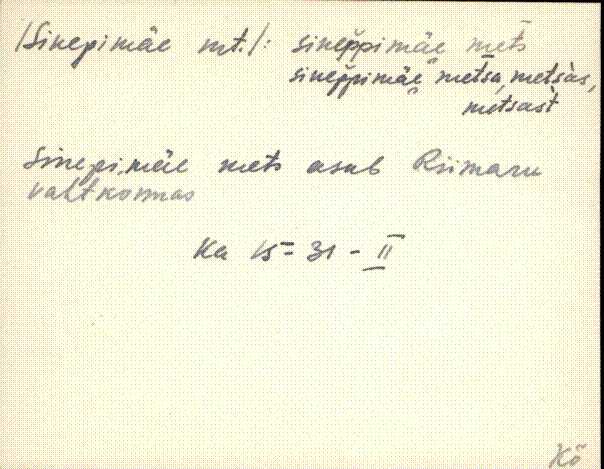 /Sinepimäe mt./: sinep̆pimäe mets
sinep̆pimäe metsa, metsàs,
metsast̀
Sinepimäe mets asub Riimaru
vahtkonnas
Ka 15 = 31 - II
Kõ